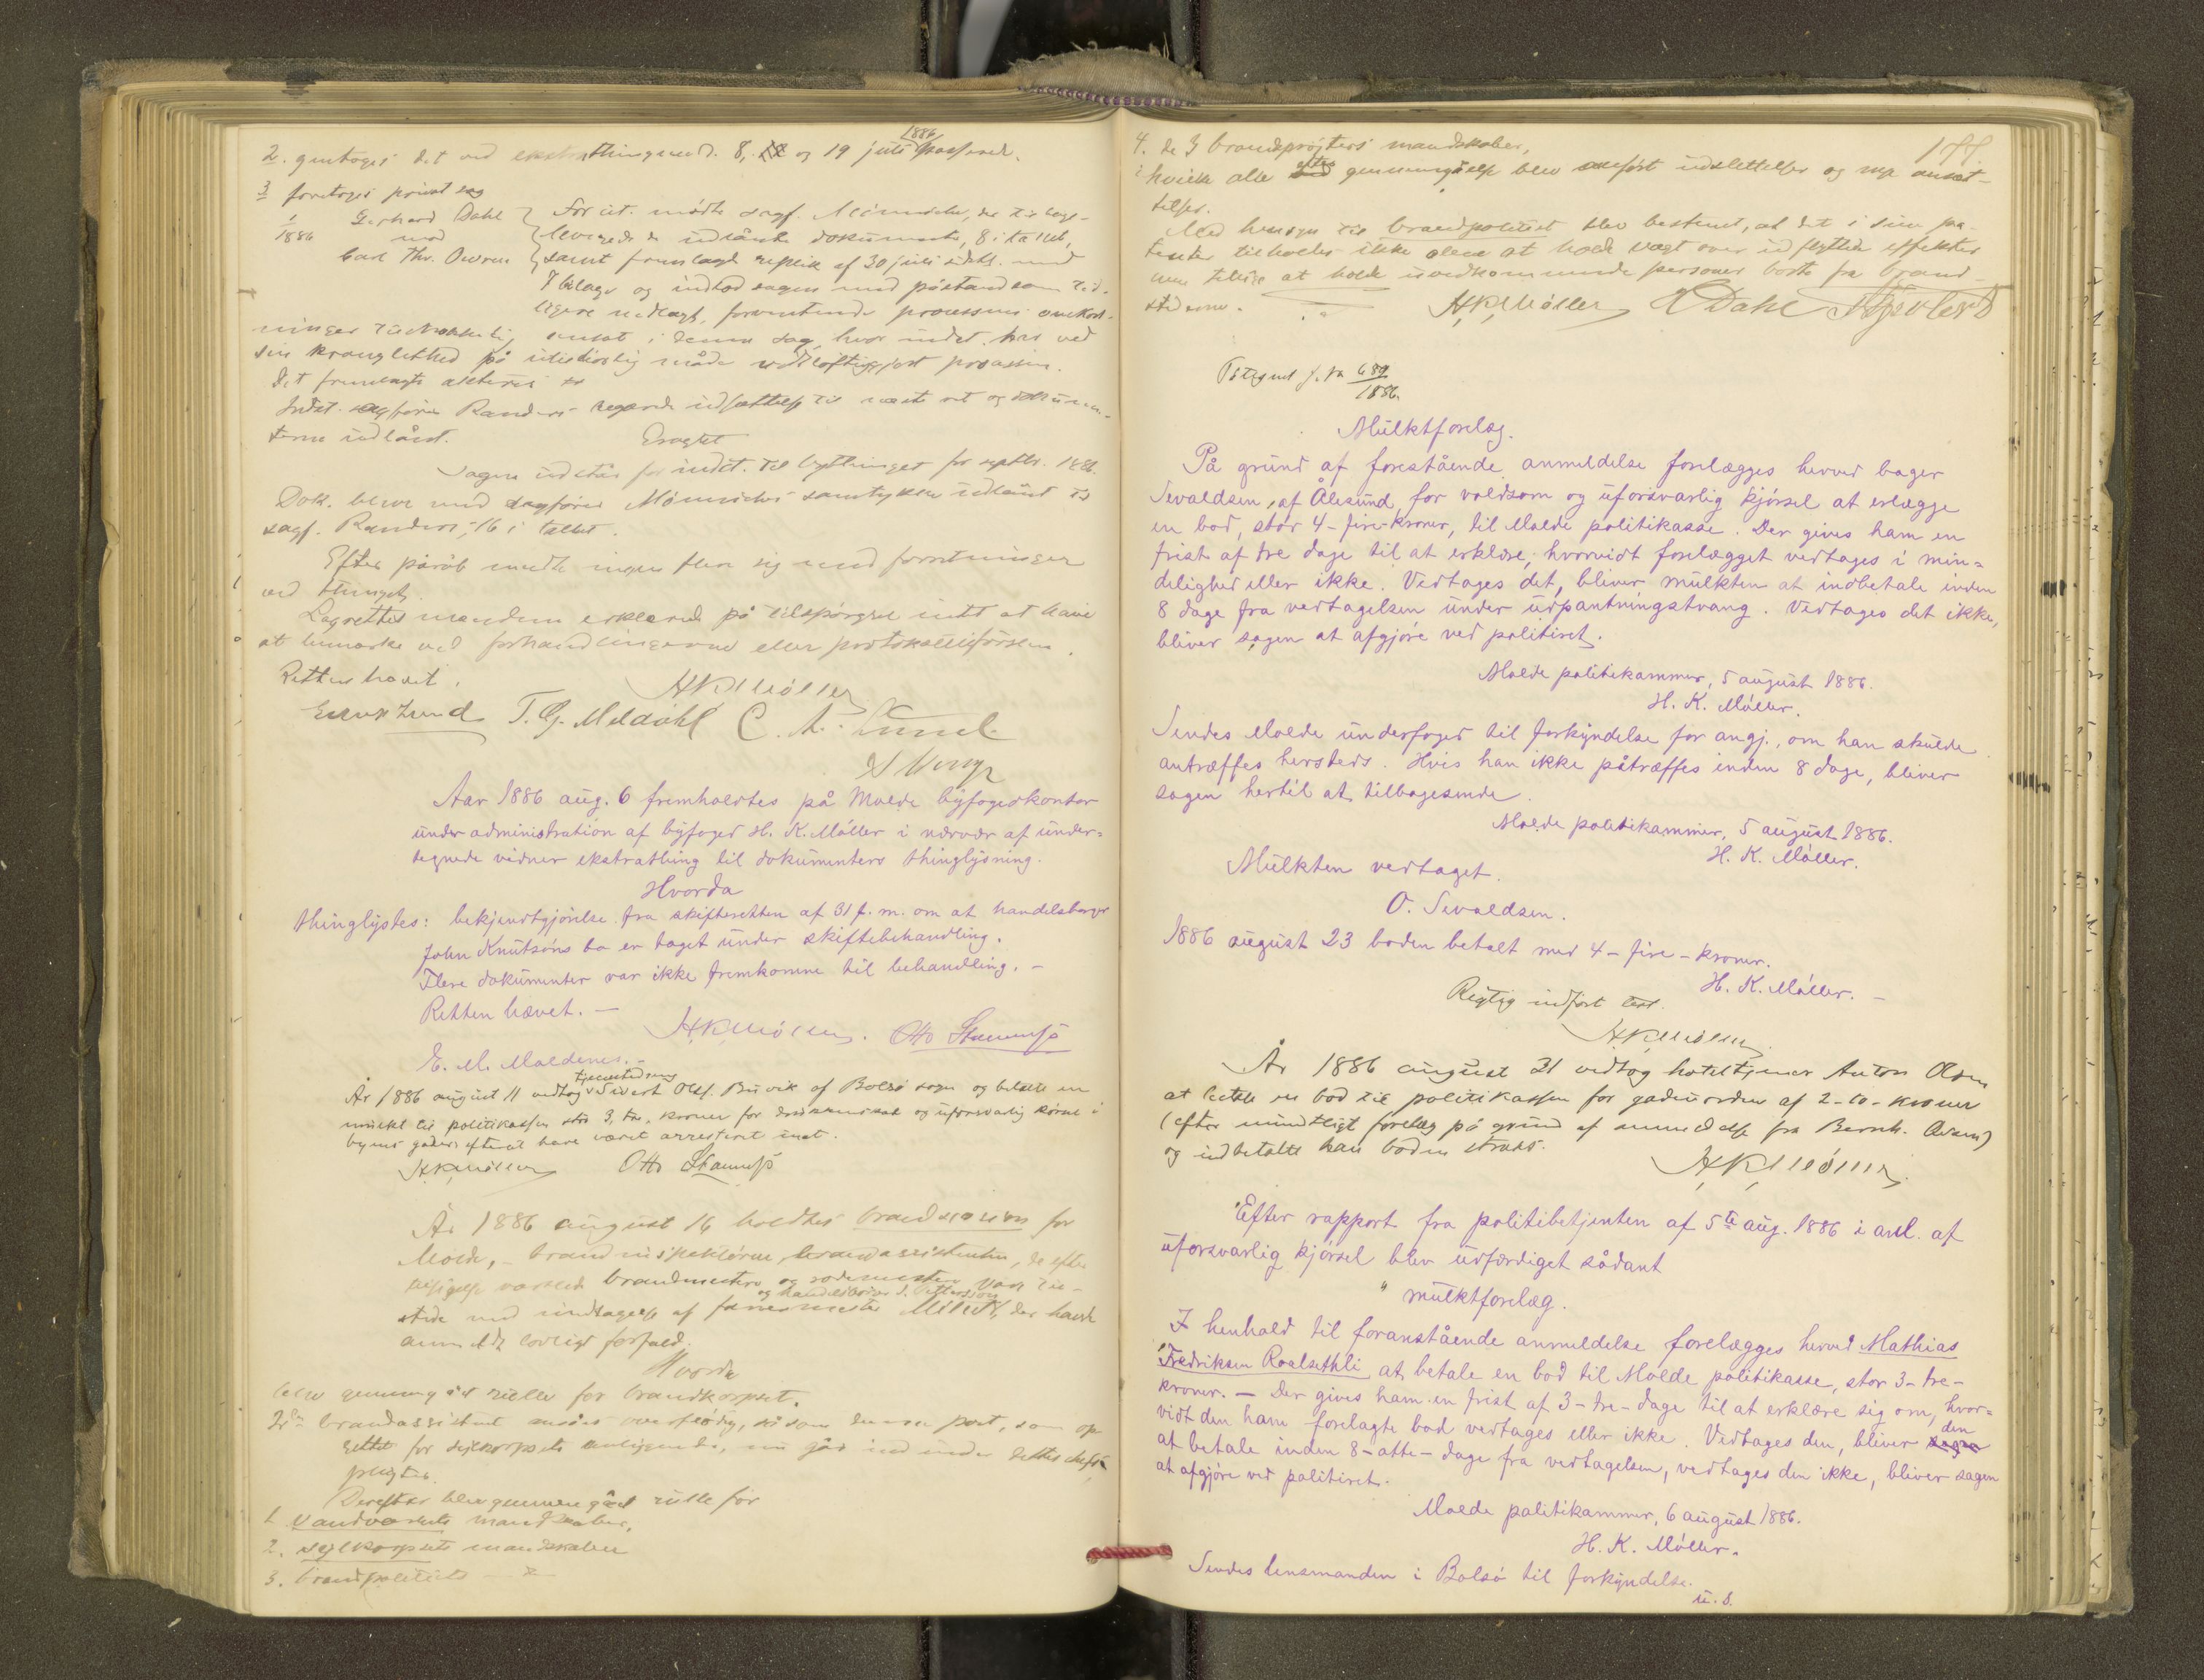 2. gentoges det ved ekstrathingene d. 8, og 19 juli 1886 passerede.
3 foretoges privat sag
1/1886 Gerhard Dahl mod Carl Thr. Owren
For cit. mødte sagf. Münnich, der tilbage-
leverede de udlånte dokumenter, 8 i tallet,
samt fremlagde replik af 30 juli sidstl. med
7 bilage og indlod sagen med påstand som tid-
ligere nedlagt, forventende processens omkost-
ninger i denne sag, hvor indst. har ved
sin kranglethed på utilstedelig måde vidtløftiggjort processen.
Det fremlagte akteres
Indst. sagfører Randers begærede udsættelse til næste ret og dokumen-
terne udlånt.
Eragtet
Sagen udstår for indst. til bythinget for septbr. 1886.
Dok. bleve med sagfører Münnichs samtykke udlånt til
sagf. Randers, 16 i tallet.
Efter påråb meldte ingen flere sig med forretninger
ved thinget.
Lagrettesmændene erklærede på tilspørgsel intet at have
at bemærke ved forhandlingerne eller protokollationen.
Retten hævet.
HKMøller
Lund T. G. Meldahl C. A. Lund
Aar 1886 aug. 6 fremholdtes på Molde byfogedkontor
under administration af byfoged H. K. Møller i nærvær af under=
tegnede vidner ekstrathing til dokumenters thinglysning.
Hvorda
thinglystes: bekjendtgjørelse fra skifteretten af 31 f. m. om at handelsborger
John Knutsøns bo er taget under skiftebehandling.
Flere dokumenter var ikke fremkomne til behandling. –
Retten hævet. –
HKMøller. Otto
E. M. Moldenes. –
År 1886 august 11 vedtog tjenestedreng Sivert Olsf. Buvik af Bolsø sogn og betalte en
mulkt til politikassen stor 3, tre, kroner for drukkenskab og uforsvarlig kørsel i
byens gader efterat have været arresteret inat.
HKMøller Otto
År 1886 august 16 holdtes brandsession for
Molde, – brandinspektøren, brandassistenten, de efter
tilsigelse varslede brandmestere og rodemestere var til-
stede med undtagelse af farvermester og handelsborger J. Pettersson, der havde
anmeldt lovligt forfald.
Hvorda
blev gennemgået rulle for brandkorpset.
2den brandassistent ansåes overflødig, såsom denne post, som op-
rettet for sejlkorpsets anliggende, nu går ind under dettes chefs
pligter.
Derefter blev gennemgået rulle for
1. vandværkets mandskaber,
2. sejlkorpsets mandskaber
3. brandpolitiets –"–
4. de 3 brandsprøjters mandskaber,
i hvilke alle efter gennemgåelse blev anført udslettelser og nye ansæt-
telser.
Med hensyn til brandpolitiet blev bestemt, at det i sine pa-
tenter tilholdes ikke alene at holde vagt over udflyttede effekter
men tillige at holde uvedkommende personer borte fra brand-
stederne.
HKMøller K Dahl
Påtegnet J. No 689/1886.
Mulktforelæg.
På grund af forestående anmeldelse forelægges herved bager
Sevaldsen, af Ålesund for voldsom og uforsvarlig kjørsel at erlægge
en bod, stor 4-fire-kroner, til Molde politikasse. Der gives ham en
frist af tre dage til at erklære, hvorvidt forelægget vedtages i min=
delighed eller ikke. Vedtages det, bliver mulkten at indbetale inden
8 dage fra vedtagelsen under udpantningstvang. Vedtages det ikke,
bliver sagen at afgjøre ved politiret.
Molde politikammer, 5 august 1886.
H. K. Møller.
Sendes Molde underfoged til forkyndelse for angj., om han skulde
antræffes hersteds. Hvis han ikke påtræffes inden 8 dage, bliver
sagen hertil at tilbagesende.
Molde politikammer, 5 august 1886.
H. K. Møller.
Mulkten vedtaget.
O. Sevaldsen.
1886 august 23 boden betalt med 4-fire-kroner.
H. K. Møller. –
Rigtig indført test.
HKMøller.
År 1886 august 21 vedtog hoteltjener Anton Olsen
at betale en bod til politikassen for gadeuorden af 2-to-kroner
(efter mundtligt forelæg på grund af anmeldelse fra Bernh. Owren)
og indbetalte han boden straks.
HKMøller.
Efter rapport fra politibetjenten af 5te aug. 1886 i anl. af
uforsvarlig kjørsel blev udfærdiget sådant
" mulktforelæg.
I henhold til foranstående anmeldelse forelægges herved Mathias
Fredriksen Roalsethli at betale en bod til Molde politikasse, stor 3-tre-
kroner. – Der gives ham en frist af 3-tre-dage til at erklære sig om, hvor=
vidt den ham forelagte bod vedtages eller ikke. Vedtages den, bliver den
at betale inden 8-otte-dage fra vedtagelsen, vedtages den ikke, bliver sagen
at afgjøre ved politiret.
Molde politikammer, 6 august 1886.
H. K. Møller.
Sendes lensmanden i Bolsø til forkyndelse.
u. s.